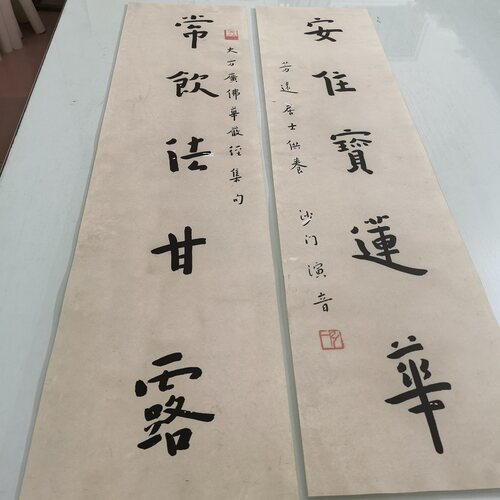 安住寶蓮華
芳遠居士供養 沙门演音
大方廣佛華嚴經集句
常飲法甘露